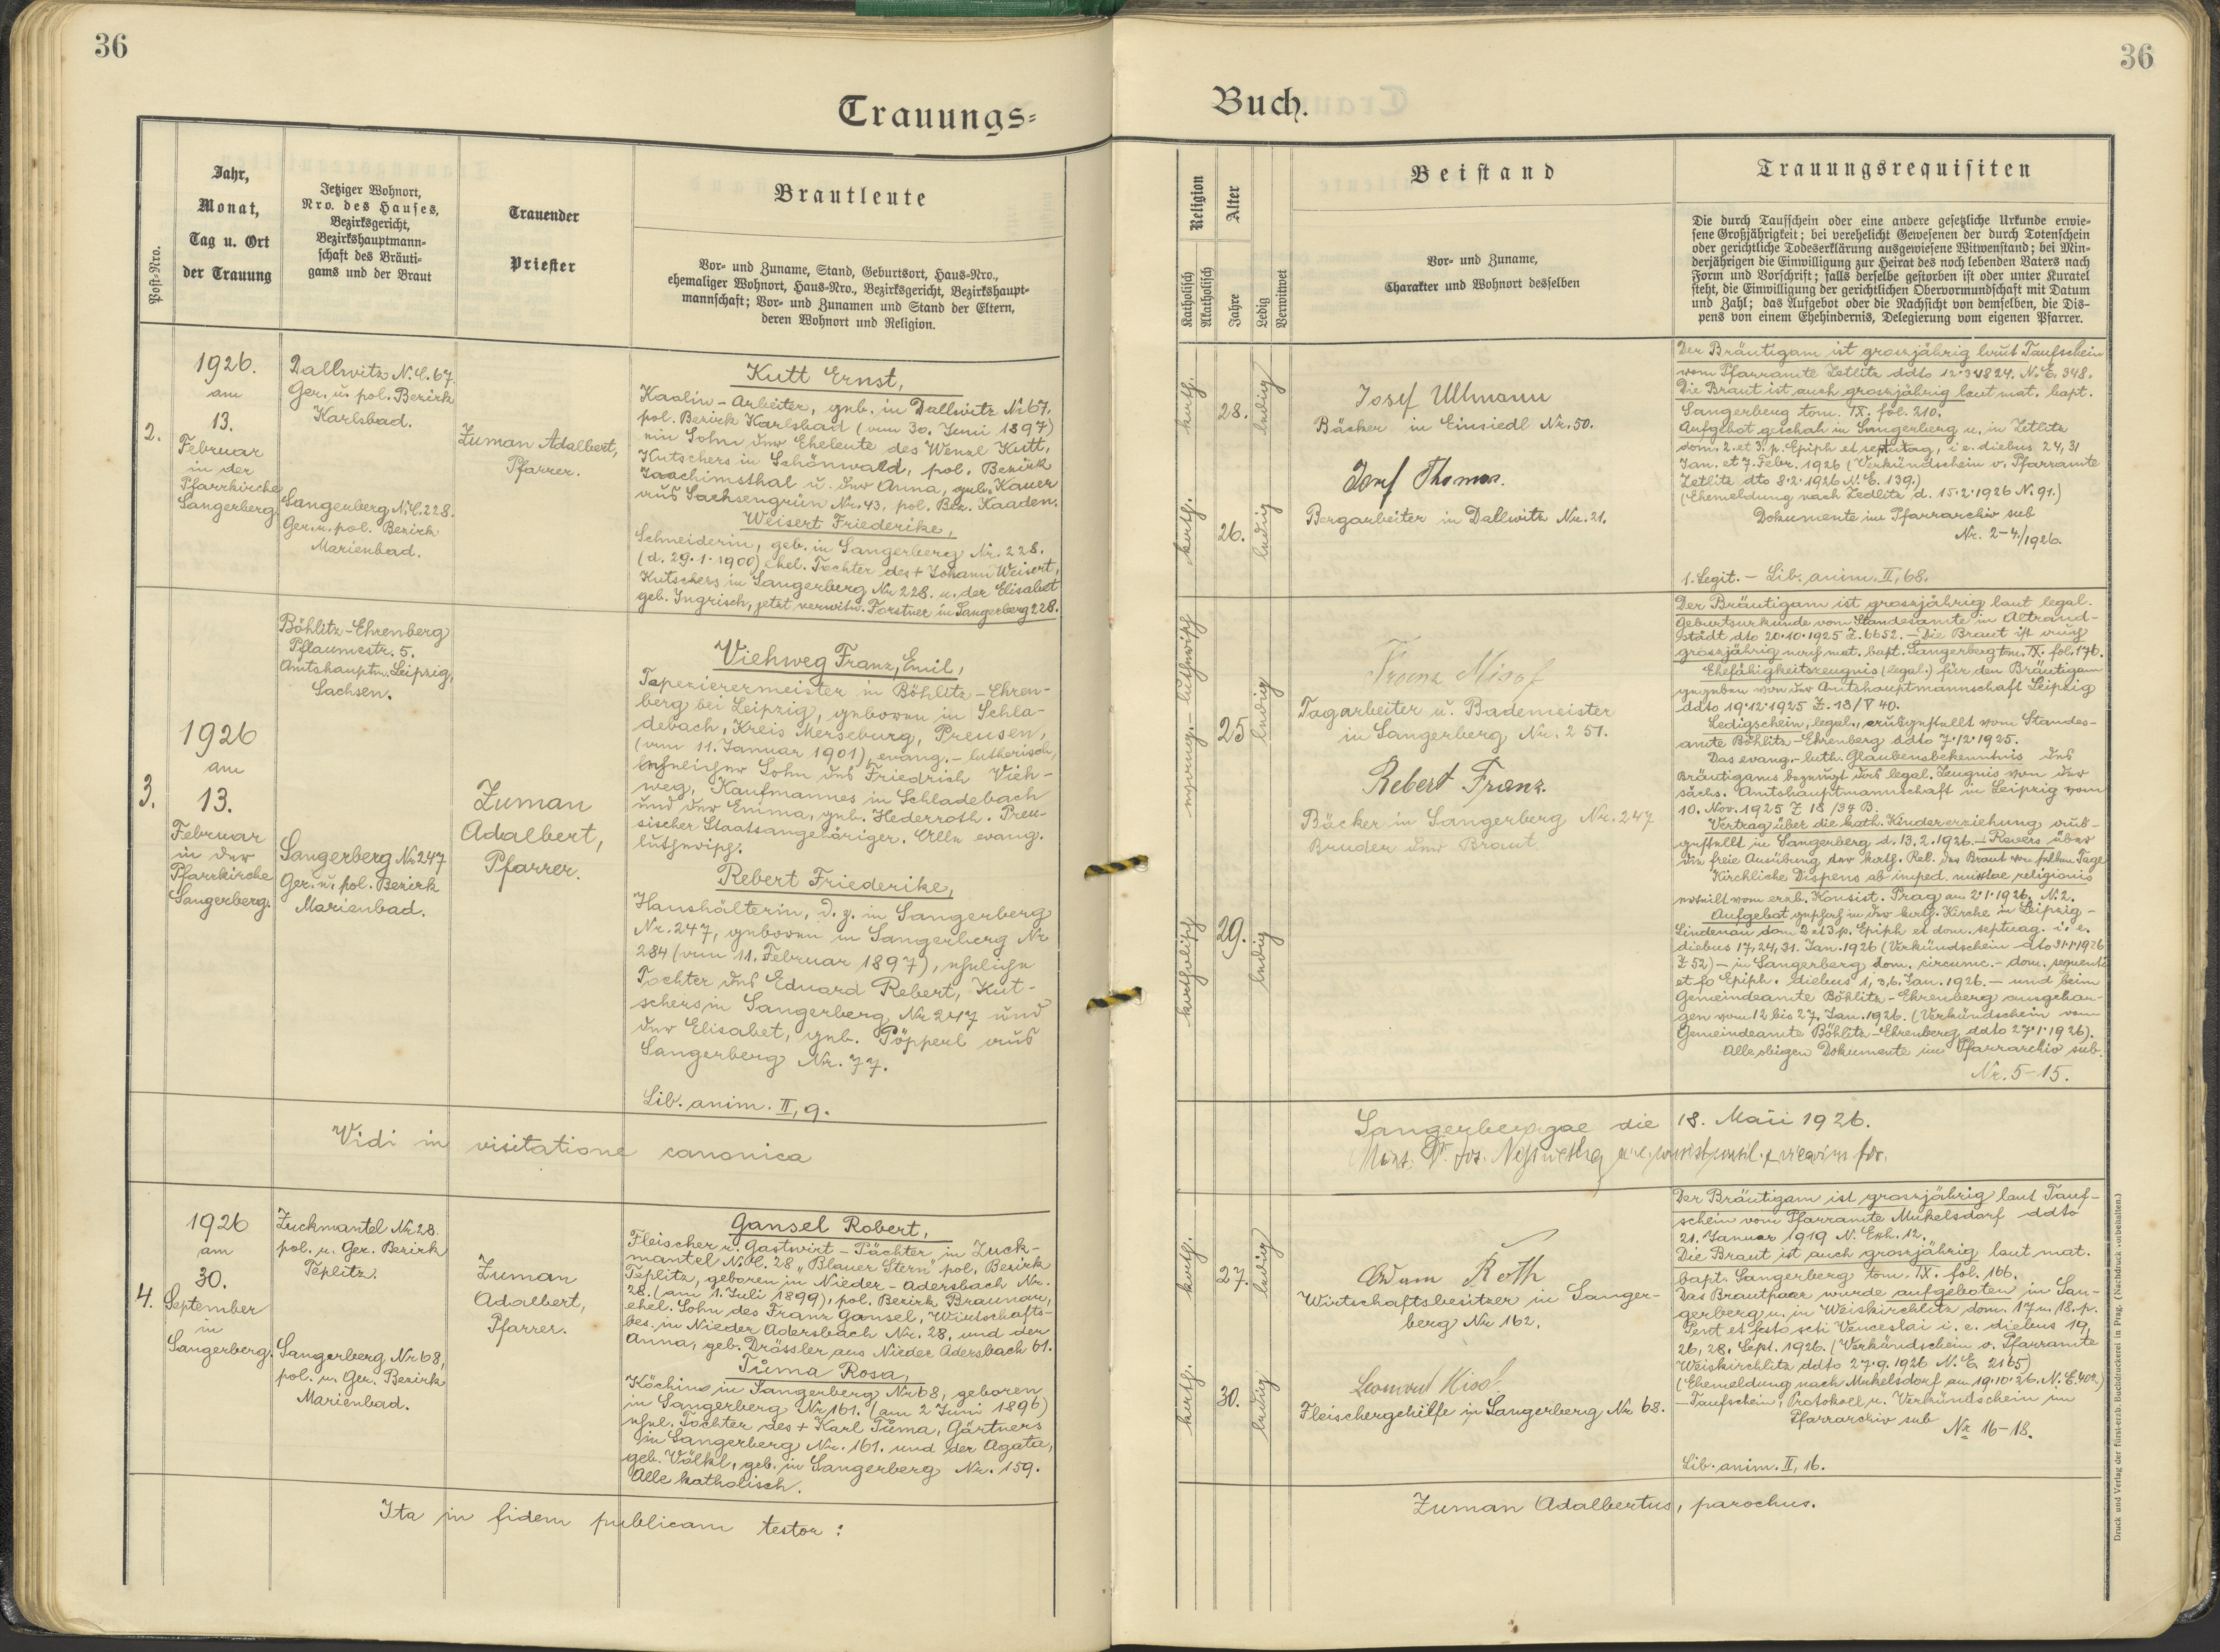 36
Trauungs=
Post=Nro.
Jahr,
Monat,
Tag u. Ort
der Trauung
Jetziger Wohnort,
Nro. des Hauses,
Bezirksgericht,
Bezirkshauptmann=
schaft des Bräuti=
gams und der Braut
Trauender
Priester
Brautleute
Vor= und Zuname, Stand, Geburtsort, Haus=Nro.,
ehemaliger Wohnort, Haus=Nro., Bezirksgericht, Bezirkshaupt=
mannschaft; Vor= und Zunamen und Stand der Eltern,
deren Wohnort und Religion.
2.
1926.
am
13.
Februar
in der
Pfarrkirche
Sangerberg.
Dallwitz N.C. 67.
Ger. u. pol. Bezirk
Karlsbad.
Sangerberg N.C. 228.
Ger. u. pol. Bezirk
Marienbad.
Zuman Adalbert,
Pfarrer.
Kutt Ernst,
Kaolin-Arbeiter, geb. in Dallwitz Nr 67,
pol. Bezirk Karlsbad (am 30. Juni 1897)
ein Sohn der Eheleute des Wenzl Kutt,
Kutschers in Schönwald, pol. Bezirk
Joachimsthal u. der Anna, geb. Kauer
aus Sachsengrün Nr. 43, pol. Bez. Kaaden.
Weisert Friederike,
Schneiderin, geb. in Sangerberg Nr. 228.
(d. 29.1.1900) ehel. Tochter des + Johann Weisert,
Kutschers in Sangerberg Nr 228. u. der Elisabet
geb. Ingrisch, jetzt verwitw. Forstner in Sangerberg 228.
3.
1926
am
13.
Februar
in der
Pfarrkirche
Sangerberg.
Böhlitz-Ehrenberg
Pflaumestr. 5.
Amtshauptm. Leipzig,
Sachsen.
Sangerberg Nr 247
Ger. u. pol. Bezirk
Marienbad.
Zuman
Adalbert,
Pfarrer.
Viehweg Franz, Emil,
Tapezierermeister in Böhlitz-Ehren-
berg bei Leipzig, geboren in Schla-
debach, Kreis Merseburg, Preusen,
(am 11. Januar 1901), evang.-lutherisch,
ehelicher Sohn des Friedrich Vieh-
weg, Kaufmannes in Schladebach
und der Emma, geb. Hederroth. Preu-
sischer Staatsangehöriger. Alle evang.
lutherisch.
Rebert Friederike,
Haushälterin, d. z. in Sangerberg
Nr. 247, geboren in Sangerberg Nr
284 (am 11. Februar 1897), eheliche
Tochter des Eduard Rebert, Kut-
schers in Sangerberg Nr 247 und
der Elisabet, geb. Pöpperl aus
Sangerberg Nr. 77.
Lib. anim. II, 9.
Vidi in visitatione canonica
4.
1926
am
30.
September
in
Sangerberg.
Zuckmantel Nr. 28.
pol. u. Ger. Bezirk
Teplitz.
Sangerberg Nr 68,
pol. u. Ger. Bezirk
Marienbad.
Zuman
Adalbert,
Pfarrer.
Gansel Robert,
Fleischer u. Gastwirt-Pächter in Zuck-
mantel N.C. 28 „Blauer Stern" pol. Bezirk
Teplitz, geboren in Nieder-Adersbach Nr.
28. (am 1. Juli 1899), pol. Bezirk Braunau,
ehel. Sohn des Franz Gansel, Wirtschafts-
bes. in Nieder Adersbach Nr. 28, und der
Anna, geb. Drössler aus Nieder Adersbach 61.
Tůma Rosa,
Köchin in Sangerberg Nr 68, geboren
in Sangerberg Nr 161. (am 2 Juni 1896)
ehel. Tochter des + Karl Tůma, Gärtners
in Sangerberg Nr. 161. und der Agata,
geb. Völkl, geb. in Sangerberg Nr. 159.
Alle katholisch.
Ita in fidem publicam testor:
36
Buch.
Religion
Katholisch
Akatholisch
Alter
Jahre
Ledig
Verwitwet
Beistand
Vor= und Zuname,
Charakter und Wohnort desselben
Trauungsrequisiten
Die durch Taufschein oder eine andere gesetzliche Urkunde erwie=
sene Großjährigkeit; bei verehelicht Gewesenen der durch Totenschein
oder gerichtliche Todeserklärung ausgewiesene Witwenstand; bei Min=
derjährigen die Einwilligung zur Heirat des noch lebenden Vaters nach
Form und Vorschrift; falls derselbe gestorben ist oder unter Kuratel
steht, die Einwilligung der gerichtlichen Obervormundschaft mit Datum
und Zahl; das Aufgebot oder die Nachsicht von demselben, die Dis=
pens von einem Ehehindernis, Delegierung vom eigenen Pfarrer.
kath.
28.
ledig
Josef Ullmann
Bäcker in Einsiedl Nr. 50.
kath.
26.
ledig
Josef Thomas.
Bergarbeiter in Dallwitz Nr. 21.
Der Bräutigam ist groszjährig laut Taufschein
vom Pfarramte Zetlitz ddto N. E. 348.
Die Braut ist auch groszjährig laut mat. bapt.
Sangerberg tom. IX. fol. 210.
Aufgebot geschah in Sangerberg u. in Zetlitz
dom. 2. et 3. p. Epiph et septuag, i e. diebus 24, 31
Jan. et 7. Febr. 1926 (Verkündschein v. Pfarramte
Zetlitz dto 8.2.1926 N. E. 139.)
(Ehemeldung nach Zedlitz d. 15.2.1926 N. 91.)
Dokumente im Pfarrarchiv sub
Nr. 2-4./1926.
1. Legit. - Lib. anim. II, 68.
evang.-lutherisch
25
ledig
Franz
Tagarbeiter u. Bademeister
in Sangerberg Nr. 251.
katholisch
29.
ledig
Rebert Franz.
Bäcker in Sangerberg Nr. 247
Bruder der Braut.
Der Bräutigam ist groszjährig laut legal.
Geburtsurkunde vom Standesamte in Altrand-
städt dto 20.10.1925 Z. 6652. - Die Braut ist auch
groszjährig nach mat. bapt. Sangerberg tom. IX. fol. 176.
Ehefähigkeitszeugnis (legal.) für den Bräutigam
gegeben von der Amtshauptmannschaft Leipzig
ddto 19.12.1925 Z. 13/V 40.
Ledigschein, legal., ausgestellt vom Standes-
amte Böhlitz-Ehrenberg ddto 7.12.1925.
Das evang.-luth. Glaubensbekenntnis des
Bräutigams bezeugt das legal. Zeugnis von der
sächs. Amtshauptmannschaft in Leipzig vom
10. Nov. 1925 Z 18 /34 B.
Vertrag über die kath. Kindererziehung aus-
gestellt in Sangerberg d. 13.2.1926. - Revers über
die freie Ausübung der kath. Rel. der Braut vom selben Tage
Kirchliche Dispens ab imped. mixtae religionis
erteilt vom erzb. Konsist. Prag am 2.1.1926. N. 2.
Aufgebot geschah in der kath. Kirche in Leipzig-
Lindenau dom 2 et 3 p. Epiph et dom. septuag. i. e.
diebus 17, 24, 31. Jan. 1926 (Verkündschein dto 31.1.1926
Z 52) - in Sangerberg dom. circumc. - dom. sequenti
et fo Epiph. diebus 1, 3, 6. Jan. 1926. - und beim
Gemeindeamte Böhlitz-Ehrenberg ausgehan-
gen vom 12 bis 27. Jan. 1926. (Verkündschein vom
Gemeindeamte Böhlitz-Ehrenberg ddto 27.1.1926).
Alle obigen Dokumente im Pfarrarchiv sub.
Nr. 5-15.
Sangerbergae die 18. Maii 1926.
kath.
27.
ledig
Adam Roth
Wirtschaftsbesitzer in Sanger-
berg Nr 162.
kath.
30.
ledig
Fleischergehilfe in Sangerberg Nr 68.
Der Bräutigam ist groszjährig laut Tauf-
schein vom Pfarramte Mukelsdorf ddto
21. Januar 1919 N. Exh. 12.
Die Braut ist auch groszjährig laut mat.
bapt. Sangerberg tom. IX. fol. 166.
Das Brautpaar wurde aufgeboten in San-
gerberg u. in Weiskirchlitz dom. 17 u. 18. p.
Pent et festo scti Venceslai i. e. diebus 19,
26, 28. Sept. 1926. (Verkündschein v. Pfarramte
Weiskirchlitz ddto 27.9.1926 N. E. 2165)
(Ehemeldung nach Mukelsdorf am 19.10.26. N. E. 402.)
- Taufschein, Protokoll u. Verkündschein im
Pfarrarchiv sub Nr 16-18.
Lib. anim. II, 16.
Zuman Adalbertus, parochus.
Druck und Verlag der fürst-erzb. Buchdruckerei in Prag. (Nachdruck vorbehalten.)